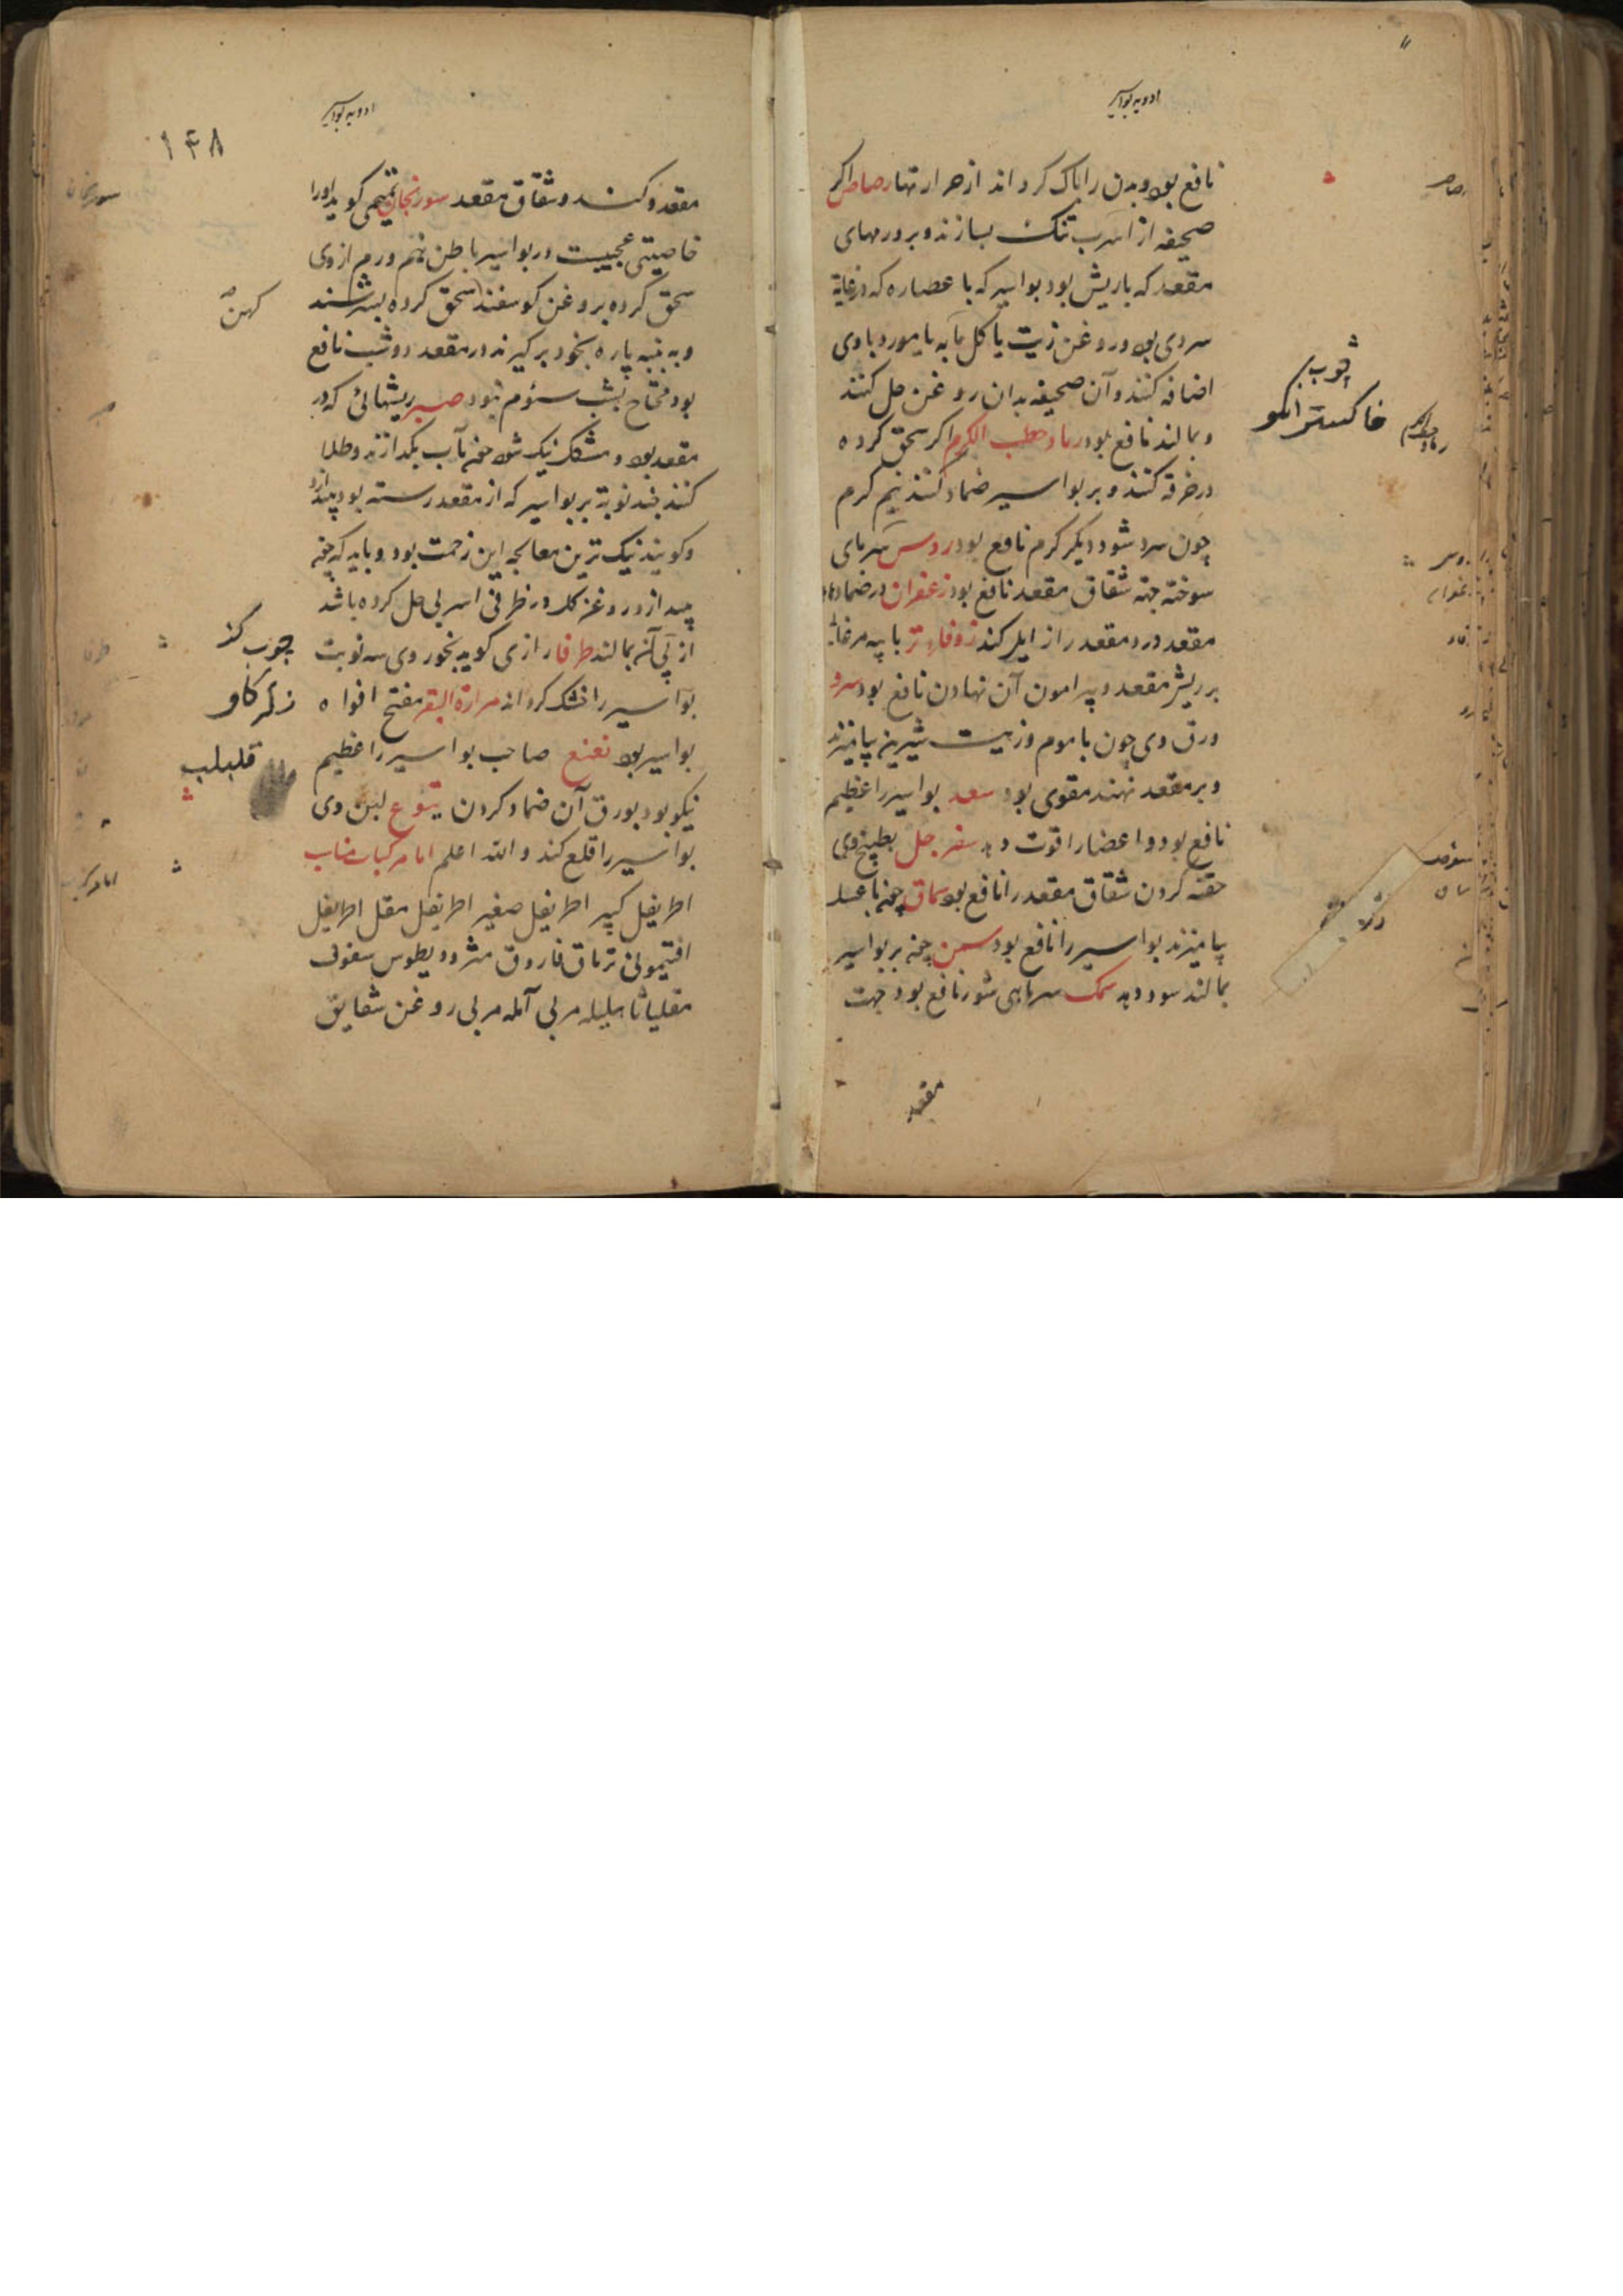 ادویه بواسیر
نافع بود و بدن را پاک کرداند از حرارتها رصاص اکر
صحیفه از اسرب تنک بسازند و برورمهای
مقعد که باریش بود بواسیر که با عصاره که در غایة
سردی بود و روغن زیت یا کل یا به یا مورد باوی
اضافه کنند و آن صحیفه بدان روغن حل کنند
و بمالند نافع بود رماد حطب الکرم اکر سحق کرده
در خرقه کنند و بر بواسیر ضماد کنند نیم کرم
چون سرد شود دیکر کرم نافع بود روس سرهای
سوخته جهة شقاق مقعد نافع بود زعفران در ضمادهاء
مقعد درد مقعد را زایل کند زوفاء تر با پیه مرغابی
بر ریش مقعد و پیرامون آن نهادن نافع بود سرو
ورق وی چون با موم و زیت شیرین بیامیزند
و بر مقعد نهند مقوی بود سعد بواسیر را عظیم
نافع بود و اعضا را قوت دهد سفرجل بطبیخ وی
حقنه کردن شقاق مقعد را نافع بود سماق چون با عسل
بیامیزند بواسیر را نافع بود سمن چون بر بواسیر
بمالند سود دهد سمک سر ماهی شور نافع بود جهت
مقعد
رصاص
چوب
خاکستر انکو
رماد حطب الکرم
ادویه بواسیر
۱۴۸
مقعد و شقاق مقعد سورنجان تمیمی کوید او را
خاصیتی عجیبست در بواسیر باطن نیم درم از وی
سحق کرده بروغن کوسفند سحق کرده بسرشند
و به پنبه پاره بخود برکیرند در مقعد دو شب نافع
بود محتاج بشب سئوم نبود صبر ریشهائی که در
مقعد بود و مشکل نیک شود چون بآب بکدازند و طلا
کنند چند نوبة بر بواسیر که از مقعد رسته بود بیندازد
و کویند نیک ترین معالجه این زحمت بود و باید که چون
بیندازد روغن کل در ظرفی اسربی حل کرده باشد
از پی آن بمالند طرفا رازی کوید بخور وی سه نوبت
بواسیر را خشک کرداند مرارة البقر مفتح افواه
بواسیر بود نعنع صاحب بواسیر را عظیم
نیکو بود بورق آن ضماد کردن یتوع لبن وی
بواسیر را قلع کند و الله اعلم اما مرکبات مناسب
اطریفل کبیر اطریفل صغیر اطریفل مقل اطریفل
افتیمونی تریاق فاروق مثرودیطوس سفوف
مقلیاثا هلیله مربی آمله مربی روغن شقایق
کهن
چوب کز
زهر کاو
قلبلب
سورنجان
طرفا